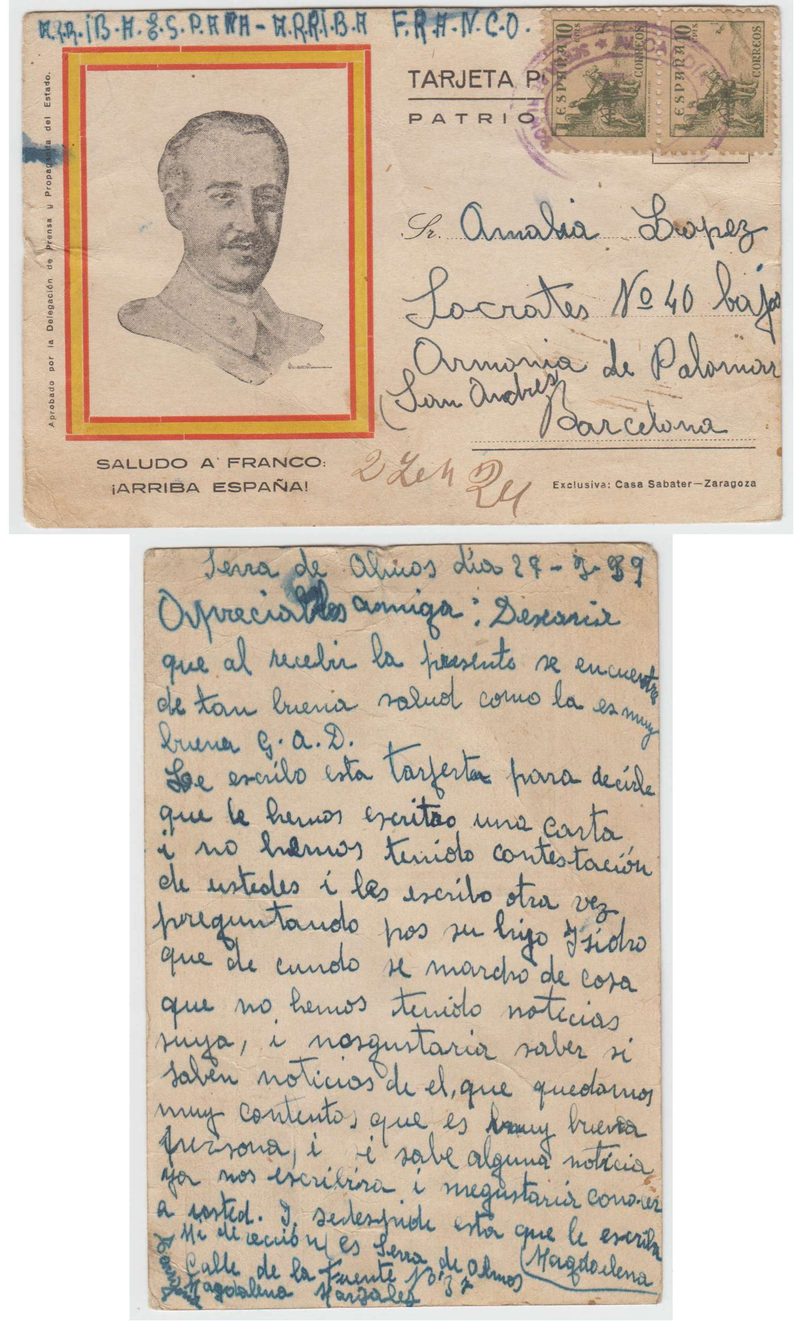 A.R.R.I.B.A. E.S.P.A.Ñ.A - A.R.R.I.B.A F.R.A.N.C.O.
Aprobado por la Delegación de Prensa y Propaganda del Estado.
SALUDO A FRANCO:
¡ARRIBA ESPAÑA!
TARJETA P
PATRIO
10 ESPAÑA CORREOS
10 ESPAÑA CORREOS
Sr. Amalia Lopez
Socrates Nº 40 bajos
Armonia de Palomar
(San Andres)
Barcelona
Exclusiva: Casa Sabater—Zaragoza
Serra de Almos día 27-3-39
Apreciables amiga: Desearia
que al recebir la presente se encuentre
de tan buena salud como la es muy
buena G. A. D.
Le escribo esta tarferta para decirle
que le hemos escritro una carta
i no hemos tenido contestación
de ustedes i les escribo otra vez
preguntando pos su hijo Isidro
que de cundo se marcho de cosa
que no hemos tenido noticias
suya, i nosgustaria saber si
saben noticias de el, que quedamos
muy contentos que es muy buena
persona, i si sabe alguna noticia
ya nos escribira i megustaria conocer
a usted. I sedespide esta que le escribe
Magdalena
Mi dirección es Serra de Almos
Calle de la Fuente Nº 37
Magdalena